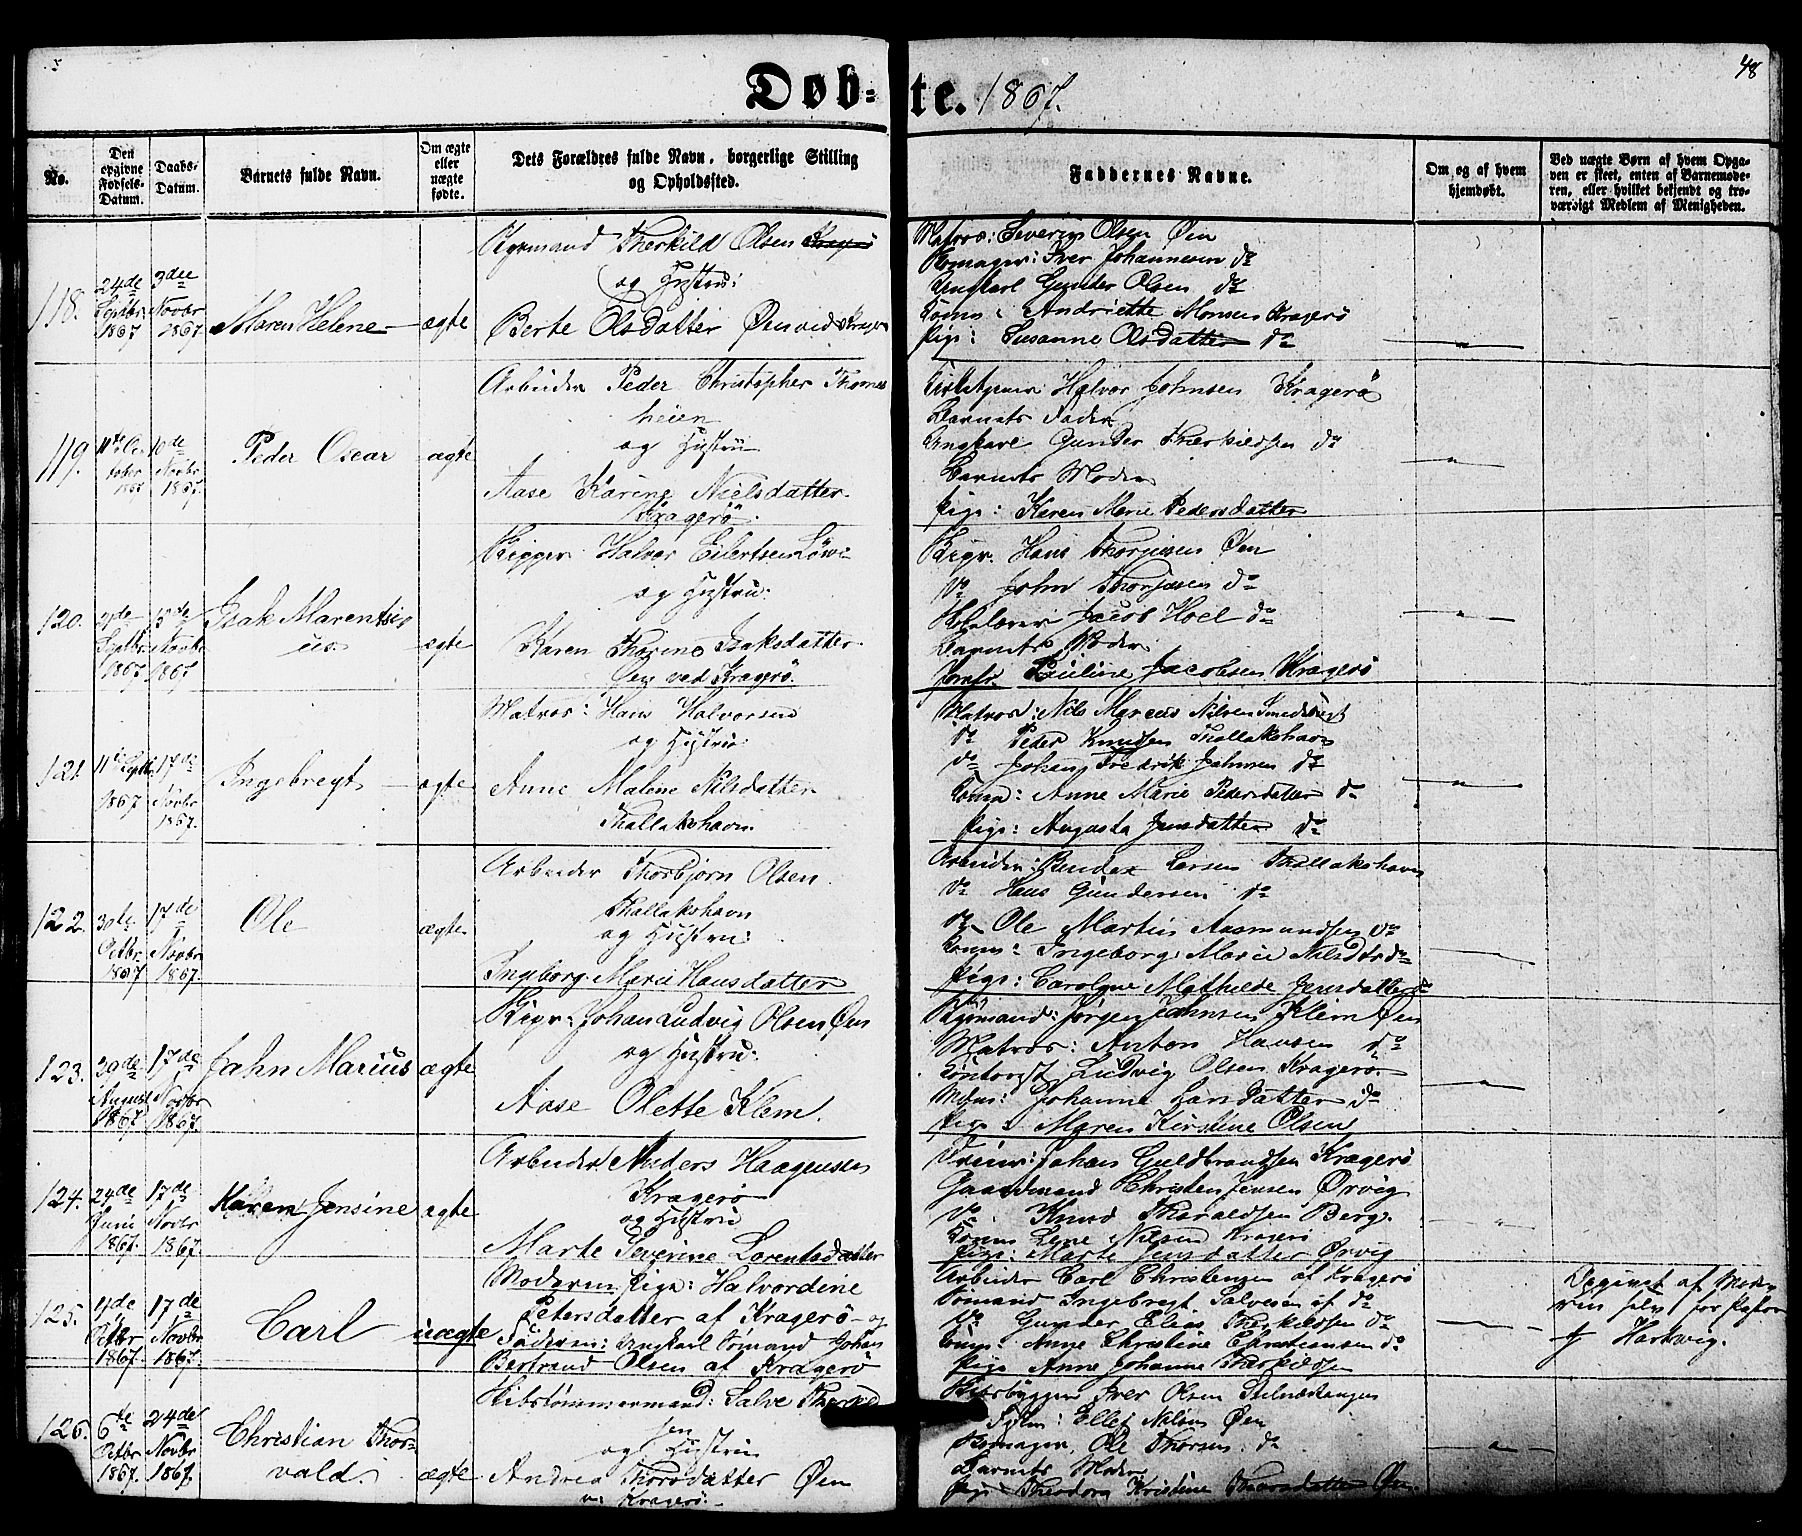 48
Døb-te. 1867.
No.
Den opgivne Fødsels-Datum.
Daabs-Datum.
Barnets fulde Navn.
Om ægte eller uægte fødte.
Dets Forældres fulde Navn, borgerlige Stilling og Opholdssted.
Faddernes Navne.
Om og af hvem hjemdøbt.
Ved uægte Børn af hvem Opgaven er skeet, enten af Barnemoderen, eller hvilket bekjendt og troværdigt Medlem af Menigheden.
118.
24de Septbr. 1867
3die Novbr 1867.
Maren Helene
ægte
Styrmand Therkild Olsen Kragerø
og Hustru:
Berte Olsdatter Øen ved Kragerø
Matros: Severin Olsen Øen
Iver Johannesen do
Ungkarl Gunder Olsen do
Andriette Monsen Kragerø
Pige: Susanne Olsdatter do
119.
11te October
10de Novbr 1867.
Peder Oscar
ægte
Arbeider Peder Christopher Thomesheien
og Hustru
Aase Karine Nielsdatter
Kragerø.
Halvor Johnsen Kragerø
Barnets Fader
Ungkarl Gunder Therkildsen do
Barnets Moder
Pige: Karen Marie Pedersdatter
120.
Septbr. 1867
Novbr 1867
Isak Marentsius
ægte
Rigger Halvor Eilertsen
og Hustru:
Karen Thorine Isaksdatter
Øen ved Kragerø.
Hans Thorjusen Øen
do John Thorjusen do
Jacob Hoel do
Barnets Moder
Jomfr Pauline Jacobsen Kragerø
121.
11te Septbr 1867
17de Novbr 1867.
Ingebregt
ægte
Matros: Hans Halvorsen
og Hustru:
Anne Malene Nilsdatter
Thallakshavn.
Matros: Nils Marcus Nilsen
do Peder Knudsen Thallakshavn
do Johan Fredrik Jahnsen do
Anne Marie Pedersdatter do
Pige: Augusta Jensdatter do
122.
30te Octbr. 1867
17de Novbr 1867.
Ole
ægte
Arbeider Thorbjørn Olsen
Thallakshavn
og Hustru:
Ingeborg Marie Hansdatter
Arbeider: Larsen Thallakshavn
do Hans Gundersen do
do Ole Martin Aasmundsen do
Ingeborg Marie Nilsdtr do
Pige: Caroline Mathilde Jensdatter do
123.
August 1867
17de Novbr 1867.
Jahn Marius
ægte
Johan Ludvig Olsen Øen
og Hustru:
Aase Olette Klem.
Styrmand: Jørgen Jahnsen Klem Øen
Matros: Anton Hansen do
Contorist Ludvig Olsen Kragerø
Johanne Larsdatter do
Pige: Maren Kirstine Olsen
124.
24de Juni 1867.
17de Novbr 1867.
Karen Jensine
ægte
Arbeider Anders Haagensen
Kragerø
og Hustru
Marte Severine Lorentsdatter
Johan Guldbrandsen Kragerø
Gaardmand Christen Jensen Ørvig
do Knud Tharaldsen Berg.
Lene Nilsen Kragerø
Pige: Marte Jensdatter Ørvig
125.
Octbr 1867.
17de Novbr 1867.
Carl
uægte
Moderen Pige: Halvordine
Petersdatter af Kragerø og
Faderen: Ungkarl Sømand Johan
Bertrand Olsen af Kragerø
Arbeider Carl Christensen af Kragerø
Sømand Ingebregt Salvesen af do
do Gunder Elias Therkildsen do
Anne Christine Christiansen do
Pige Anne Johanne Therkildsen
Opgivet af Moderen selv for Pastor
Hartwig.
126.
6te Octbr 1867.
24de Novbr 1867.
Christian Thorvald
ægte
Skibstømmermand: Salve Therkildsen
og Hustru
Andrea Thorsdatter Øen
v. Kragerø.
Skibsbygger Iver Olsen
Ellef Nilsen Øen
Ole Thorsen do
Barnets Moder
Pige Theodora Kristine Thorsdatter Øen